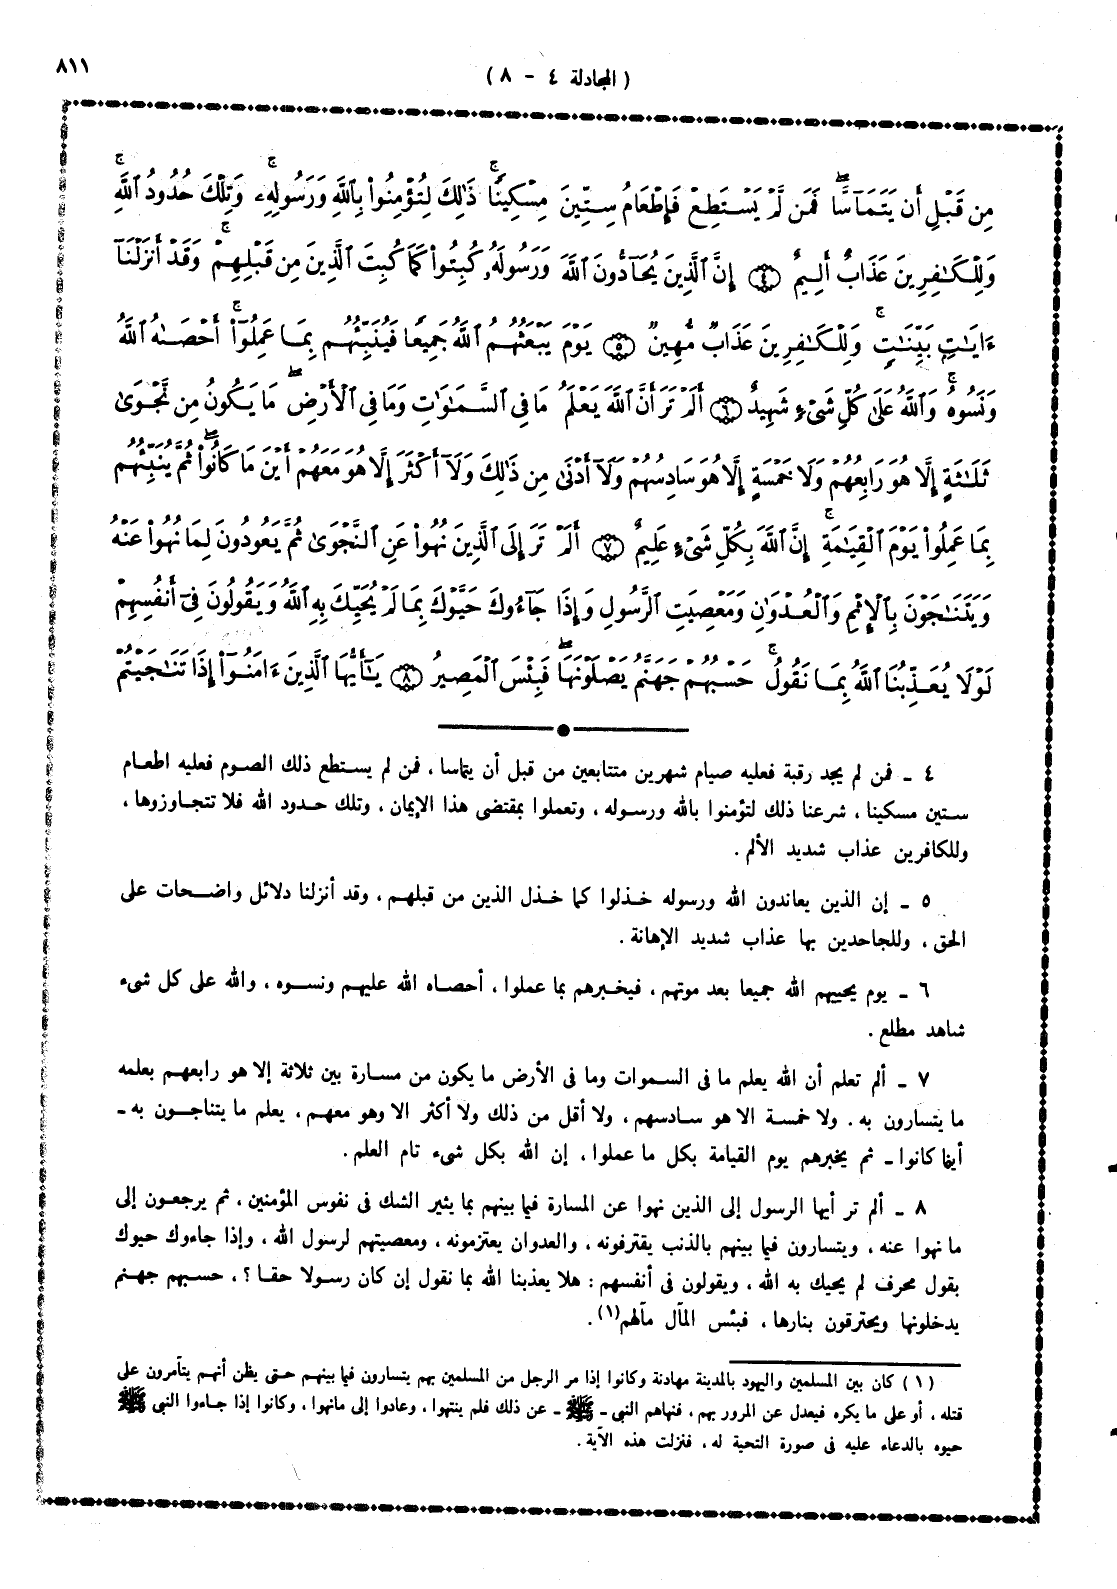 ( المجادلة ٤ - ٨ )
٨١١
مِن قَبْلِ أَن يَتَمَآسَّا ۖ فَمَن لَّمْ يَسْتَطِعْ فَإِطْعَامُ سِتِّينَ مِسْكِينًا ۚ ذَٰلِكَ لِتُؤْمِنُوا۟ بِٱللَّهِ وَرَسُولِهِۦ ۚ وَتِلْكَ حُدُودُ ٱللَّهِ ۗ
وَلِلْكَٰفِرِينَ عَذَابٌ أَلِيمٌ ﴿٤﴾ إِنَّ ٱلَّذِينَ يُحَآدُّونَ ٱللَّهَ وَرَسُولَهُۥ كُبِتُوا۟ كَمَا كُبِتَ ٱلَّذِينَ مِن قَبْلِهِمْ ۚ وَقَدْ أَنزَلْنَآ
ءَايَٰتٍۭ بَيِّنَٰتٍ ۚ وَلِلْكَٰفِرِينَ عَذَابٌ مُّهِينٌ ﴿٥﴾ يَوْمَ يَبْعَثُهُمُ ٱللَّهُ جَمِيعًا فَيُنَبِّئُهُم بِمَا عَمِلُوٓا۟ ۚ أَحْصَىٰهُ ٱللَّهُ
وَنَسُوهُ ۚ وَٱللَّهُ عَلَىٰ كُلِّ شَىْءٍ شَهِيدٌ ﴿٦﴾ أَلَمْ تَرَ أَنَّ ٱللَّهَ يَعْلَمُ مَا فِى ٱلسَّمَٰوَٰتِ وَمَا فِى ٱلْأَرْضِ ۖ مَا يَكُونُ مِن نَّجْوَىٰ
ثَلَٰثَةٍ إِلَّا هُوَ رَابِعُهُمْ وَلَا خَمْسَةٍ إِلَّا هُوَ سَادِسُهُمْ وَلَآ أَدْنَىٰ مِن ذَٰلِكَ وَلَآ أَكْثَرَ إِلَّا هُوَ مَعَهُمْ أَيْنَ مَا كَانُوا۟ ۖ ثُمَّ يُنَبِّئُهُم
بِمَا عَمِلُوا۟ يَوْمَ ٱلْقِيَٰمَةِ ۚ إِنَّ ٱللَّهَ بِكُلِّ شَىْءٍ عَلِيمٌ ﴿٧﴾ أَلَمْ تَرَ إِلَى ٱلَّذِينَ نُهُوا۟ عَنِ ٱلنَّجْوَىٰ ثُمَّ يَعُودُونَ لِمَا نُهُوا۟ عَنْهُ
وَيَتَنَٰجَوْنَ بِٱلْإِثْمِ وَٱلْعُدْوَٰنِ وَمَعْصِيَتِ ٱلرَّسُولِ وَإِذَا جَآءُوكَ حَيَّوْكَ بِمَا لَمْ يُحَيِّكَ بِهِ ٱللَّهُ وَيَقُولُونَ فِىٓ أَنفُسِهِمْ
لَوْلَا يُعَذِّبُنَا ٱللَّهُ بِمَا نَقُولُ ۚ حَسْبُهُمْ جَهَنَّمُ يَصْلَوْنَهَا ۖ فَبِئْسَ ٱلْمَصِيرُ ﴿٨﴾ يَٰٓأَيُّهَا ٱلَّذِينَ ءَامَنُوٓا۟ إِذَا تَنَٰجَيْتُمْ
٤ ـ فمن لم يجد رقبة فعليه صيام شهرين متتابعين من قبل أن يتماسا ، فمن لم يستطع ذلك الصوم فعليه اطعام
ستين مسكينا ، شرعنا ذلك لتؤمنوا بالله ورسوله ، وتعملوا بمقتضى هذا الإيمان ، وتلك حدود الله فلا تتجاوزوها ،
وللكافرين عذاب شديد الألم .
٥ ـ إن الذين يعاندون الله ورسوله خذلوا كما خذل الذين من قبلهم ، وقد أنزلنا دلائل واضحات على
الحق ، وللجاحدين بها عذاب شديد الإهانة .
٦ ـ يوم يحييهم الله جميعا بعد موتهم ، فيخبرهم بما عملوا ، أحصاه الله عليهم ونسوه ، والله على كل شىء
شاهد مطلع .
٧ ـ ألم تعلم أن الله يعلم ما فى السموات وما فى الأرض ما يكون من مسارة بين ثلاثة إلا هو رابعهم بعلمه
ما يتسارون به ، ولا خمسة الا هو سادسهم ، ولا أقل من ذلك ولا أكثر الا وهو معهم ، يعلم ما يتناجون به ـ
أينما كانوا ـ ثم يخبرهم يوم القيامة بكل ما عملوا ، إن الله بكل شىء تام العلم .
٨ ـ ألم تر أيها الرسول إلى الذين نهوا عن المسارة فيما بينهم بما يثير الشك فى نفوس المؤمنين ، ثم يرجعون إلى
ما نهوا عنه ، ويتسارون فيما بينهم بالذنب يقترفونه ، والعدوان يعتزمونه ، ومعصيتهم لرسول الله ، وإذا جاءوك حيوك
بقول محرف لم يحيك به الله ، ويقولون فى أنفسهم : هلا يعذبنا الله بما نقول إن كان رسولا حقا ؟ ، حسبهم جهنم
يدخلونها ويحترقون بنارها ، فبئس المآل مآلهم (١) .
(١) كان بين المسلمين واليهود بالمدينة مهادنة وكانوا إذا مر الرجل من المسلمين بهم يتسارون فيما بينهم حتى يظن أنهم يتآمرون على
قتله ، أو على ما يكره فيعدل عن المرور بهم ، فنهاهم النبى ـ ﷺ ـ عن ذلك فلم ينتهوا ، وعادوا إلى مانهوا ، وكانوا إذا جاءوا النبى ﷺ
حيوه بالدعاء عليه فى صورة التحية له ، فنزلت هذه الآية .